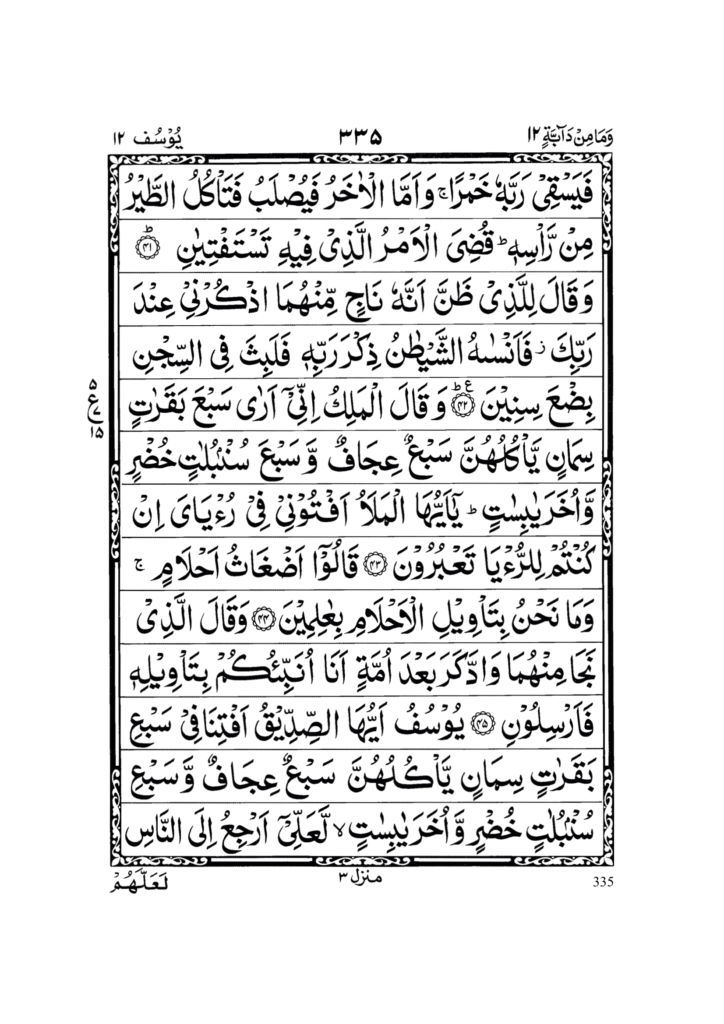 وَمَا مِنْ دَآبَّةٍ ١٢ ٣٣٥ يُوْسُف ١٢
فَيَسْقِيْ رَبَّهٗ خَمْرًا ۚ وَاَمَّا الْاٰخَرُ فَيُصْلَبُ فَتَاْكُلُ الطَّيْرُ
مِنْ رَّاْسِهٖ ؕ قُضِيَ الْاَمْرُ الَّذِيْ فِيْهِ تَسْتَفْتِيٰنِ ؕ ﴿٤١﴾
وَقَالَ لِلَّذِيْ ظَنَّ اَنَّهٗ نَاجٍ مِّنْهُمَا اذْكُرْنِيْ عِنْدَ
رَبِّكَ ز فَاَنْسٰىهُ الشَّيْطٰنُ ذِكْرَ رَبِّهٖ فَلَبِثَ فِى السِّجْنِ
بِضْعَ سِنِيْنَ ؕ ع ﴿٤٢﴾ وَقَالَ الْمَلِكُ اِنِّيْۤ اَرٰى سَبْعَ بَقَرٰتٍ
٥ ع ١٥
سِمَانٍ يَّاْكُلُهُنَّ سَبْعٌ عِجَافٌ وَّسَبْعَ سُنْۢبُلٰتٍ خُضْرٍ
وَّاُخَرَ يٰبِسٰتٍ ؕ يٰۤاَيُّهَا الْمَلَاُ اَفْتُوْنِيْ فِيْ رُءْيَايَ اِنْ
كُنْتُمْ لِلرُّءْيَا تَعْبُرُوْنَ ﴿٤٣﴾ قَالُوْۤا اَضْغَاثُ اَحْلَامٍ ۚ
وَمَا نَحْنُ بِتَاْوِيْلِ الْاَحْلَامِ بِعٰلِمِيْنَ ﴿٤٤﴾ وَقَالَ الَّذِيْ
نَجَا مِنْهُمَا وَادَّكَرَ بَعْدَ اُمَّةٍ اَنَا اُنَبِّئُكُمْ بِتَاْوِيْلِهٖ
فَاَرْسِلُوْنِ ﴿٤٥﴾ يُوْسُفُ اَيُّهَا الصِّدِّيْقُ اَفْتِنَا فِيْ سَبْعِ
بَقَرٰتٍ سِمَانٍ يَّاْكُلُهُنَّ سَبْعٌ عِجَافٌ وَّسَبْعِ
سُنْۢبُلٰتٍ خُضْرٍ وَّاُخَرَ يٰبِسٰتٍ ۙ لَّعَلِّيْۤ اَرْجِعُ اِلَى النَّاسِ
335 منزل ٣ لَعَلَّهُمْ